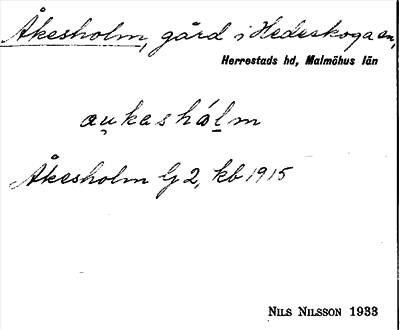 Åkesholm, gård i Hedeskoga sn,
Herrestads hd, Malmöhus län
au̯kashál̲m
Åkesholm G 2, kb 1915
NILS NILSSON 1933